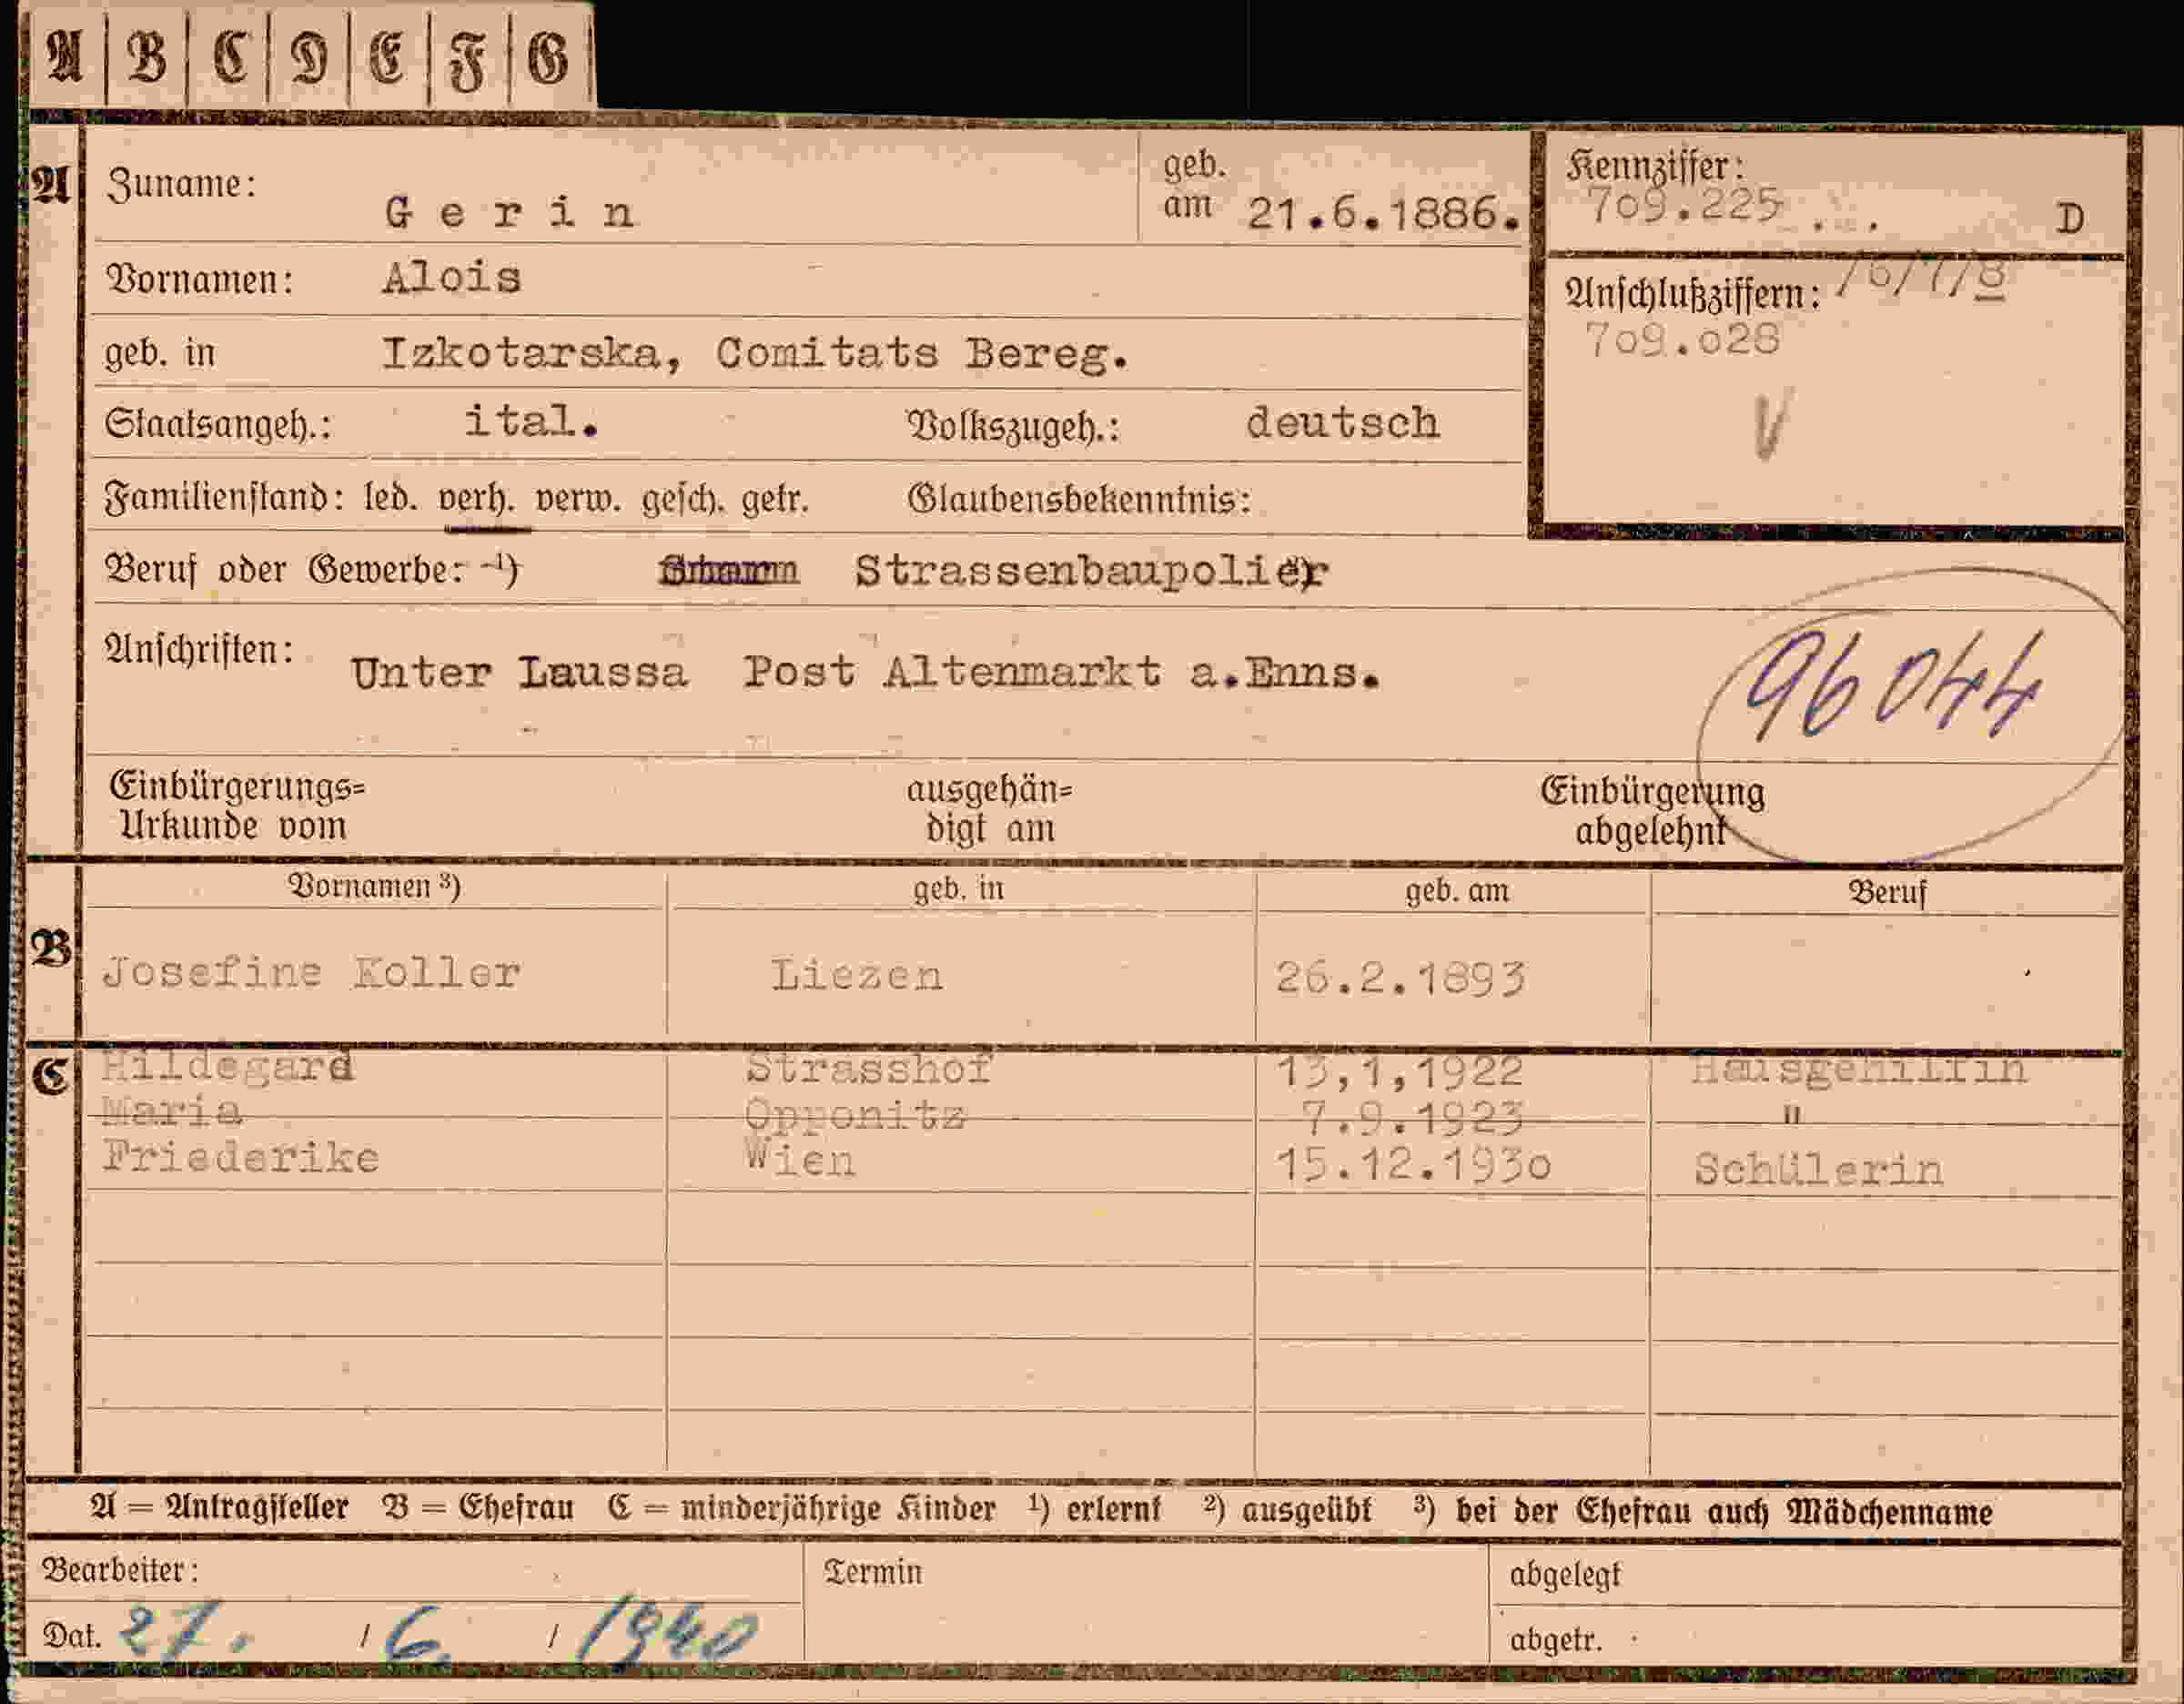 A B C D E F G
A Zuname: Gerin geb. am 21.6.1886.
Kennziffer: 709.225 D
Vornamen: Alois
Anschlußziffern: /6/7/8
709.028
V
geb. in Izkotarska, Comitats Bereg.
Staatsangeh.: ital. Volkszugeh.: deutsch
Familienstand: led. verh. verw. gesch. getr. Glaubensbekenntnis:
Beruf oder Gewerbe: ¹) Strassenbaupolier
Anschriften: Unter Laussa Post Altenmarkt a.Enns.
96044
Einbürgerungs= ausgehän= Einbürgerung
Urkunde vom digt am abgelehnt
Vornamen ³) geb. in geb. am Beruf
B Josefine Koller Liezen 26.2.1893
C Hildegard Strasshof 13,1,1922 Hausgehilfin
Maria Opponitz 7.9.1923 "
Friederike Wien 15.12.1930 Schülerin
A = Antragsteller B = Ehefrau C = minderjährige Kinder ¹) erlernt ²) ausgeübt ³) bei der Ehefrau auch Mädchenname
Bearbeiter: Termin abgelegt
Dat. 27. / 6. / 1940 abgetr.